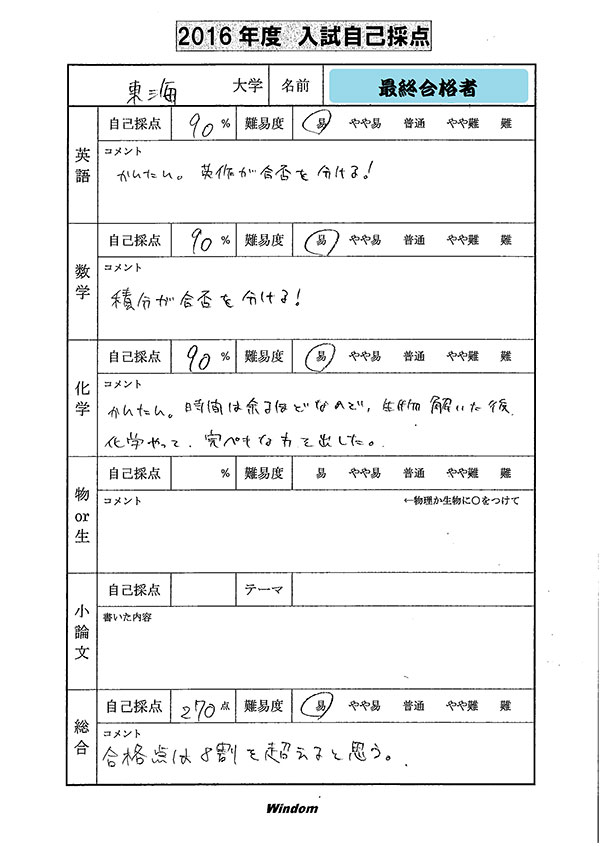 2016年度 入試自己採点
東海 大学 名前 最終合格者
英語 自己採点 90 % 難易度 易 やや易 普通 やや難 難
コメント
かんたん。英作が合否を分ける!
数学 自己採点 90 % 難易度 易 やや易 普通 やや難 難
コメント
積分が合否を分ける!
化学 自己採点 90 % 難易度 易 やや易 普通 やや難 難
コメント
かんたん。時間は余るほどなので、生物 解いた後
化学やって、完ぺきな力で出した。
物or生 自己採点 % 難易度 易 やや易 普通 やや難 難
コメント ←物理か生物に○をつけて
小論文 自己採点 テーマ
書いた内容
総合 自己採点 270 点 難易度 易 やや易 普通 やや難 難
コメント
合格点は8割を超えると思う。
Windom